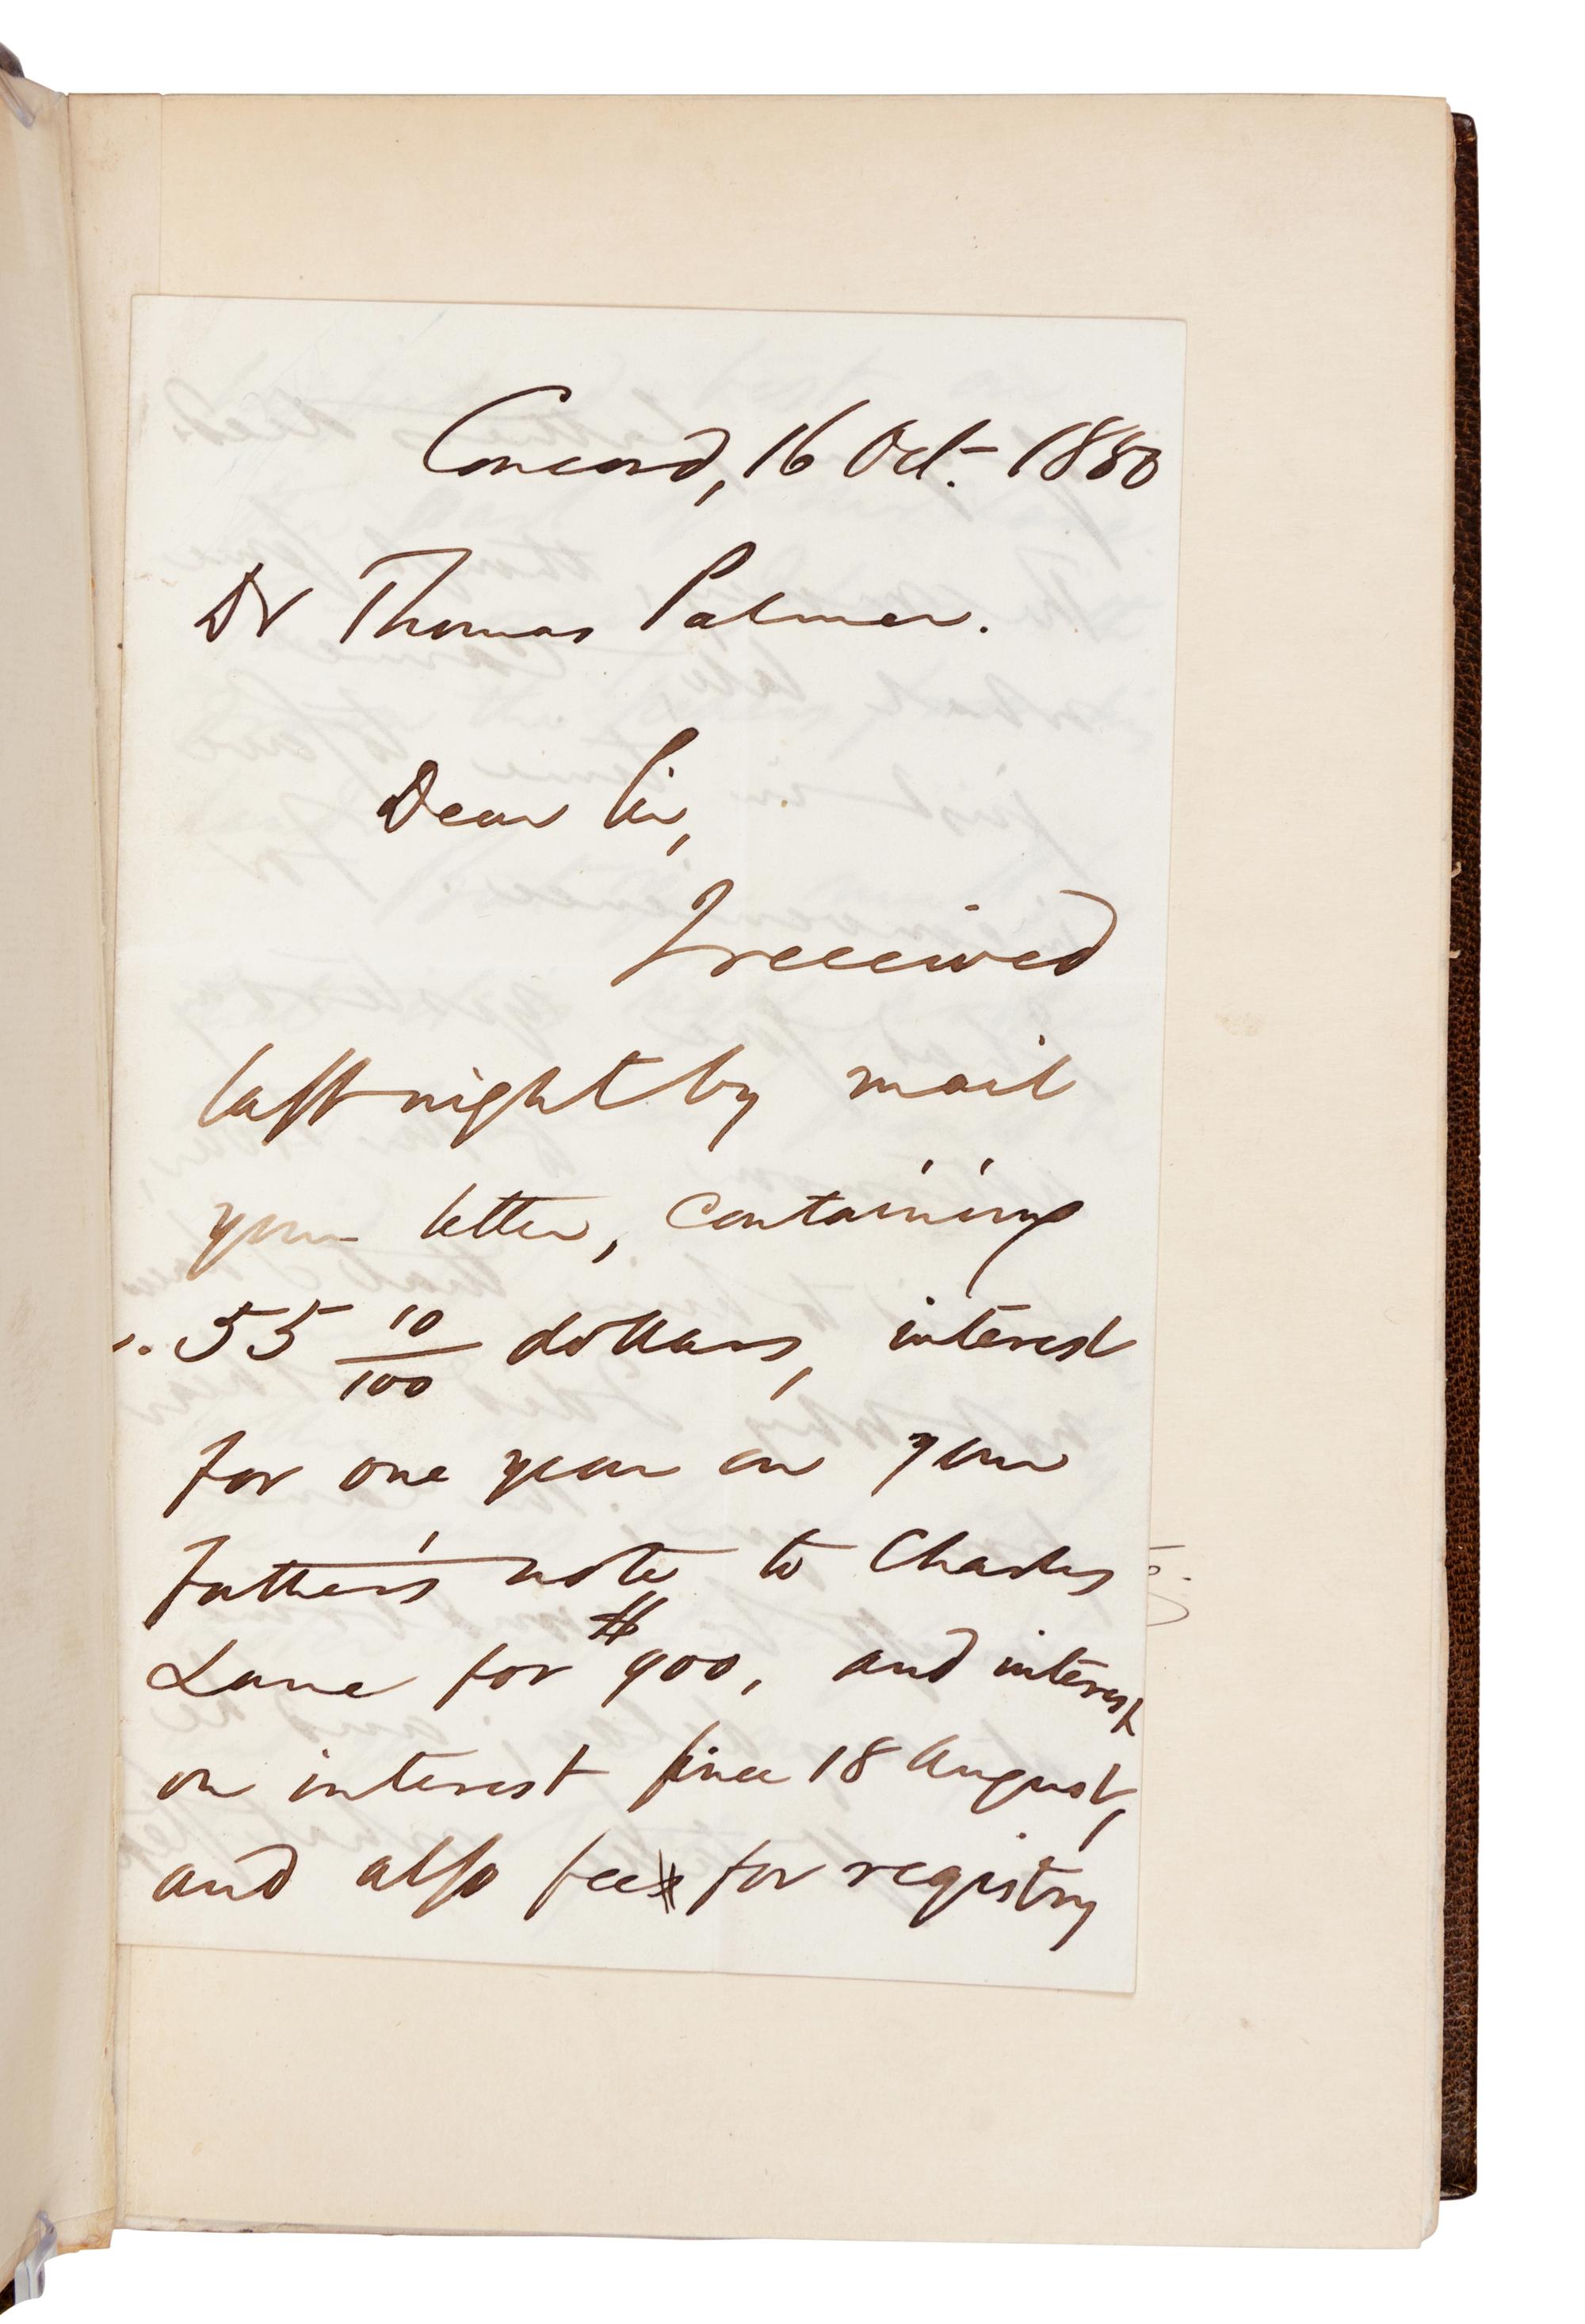 Concord, 16 Oct. 1880
Dr Thomas Palmer.
Dear Sir,
I received
last night by mail
your letter, containing
55 10/100 dollars, interest
for one year on your
father's note to Charles
Lane for $900, and interest
on interest since 18 August,
and also fee for registry